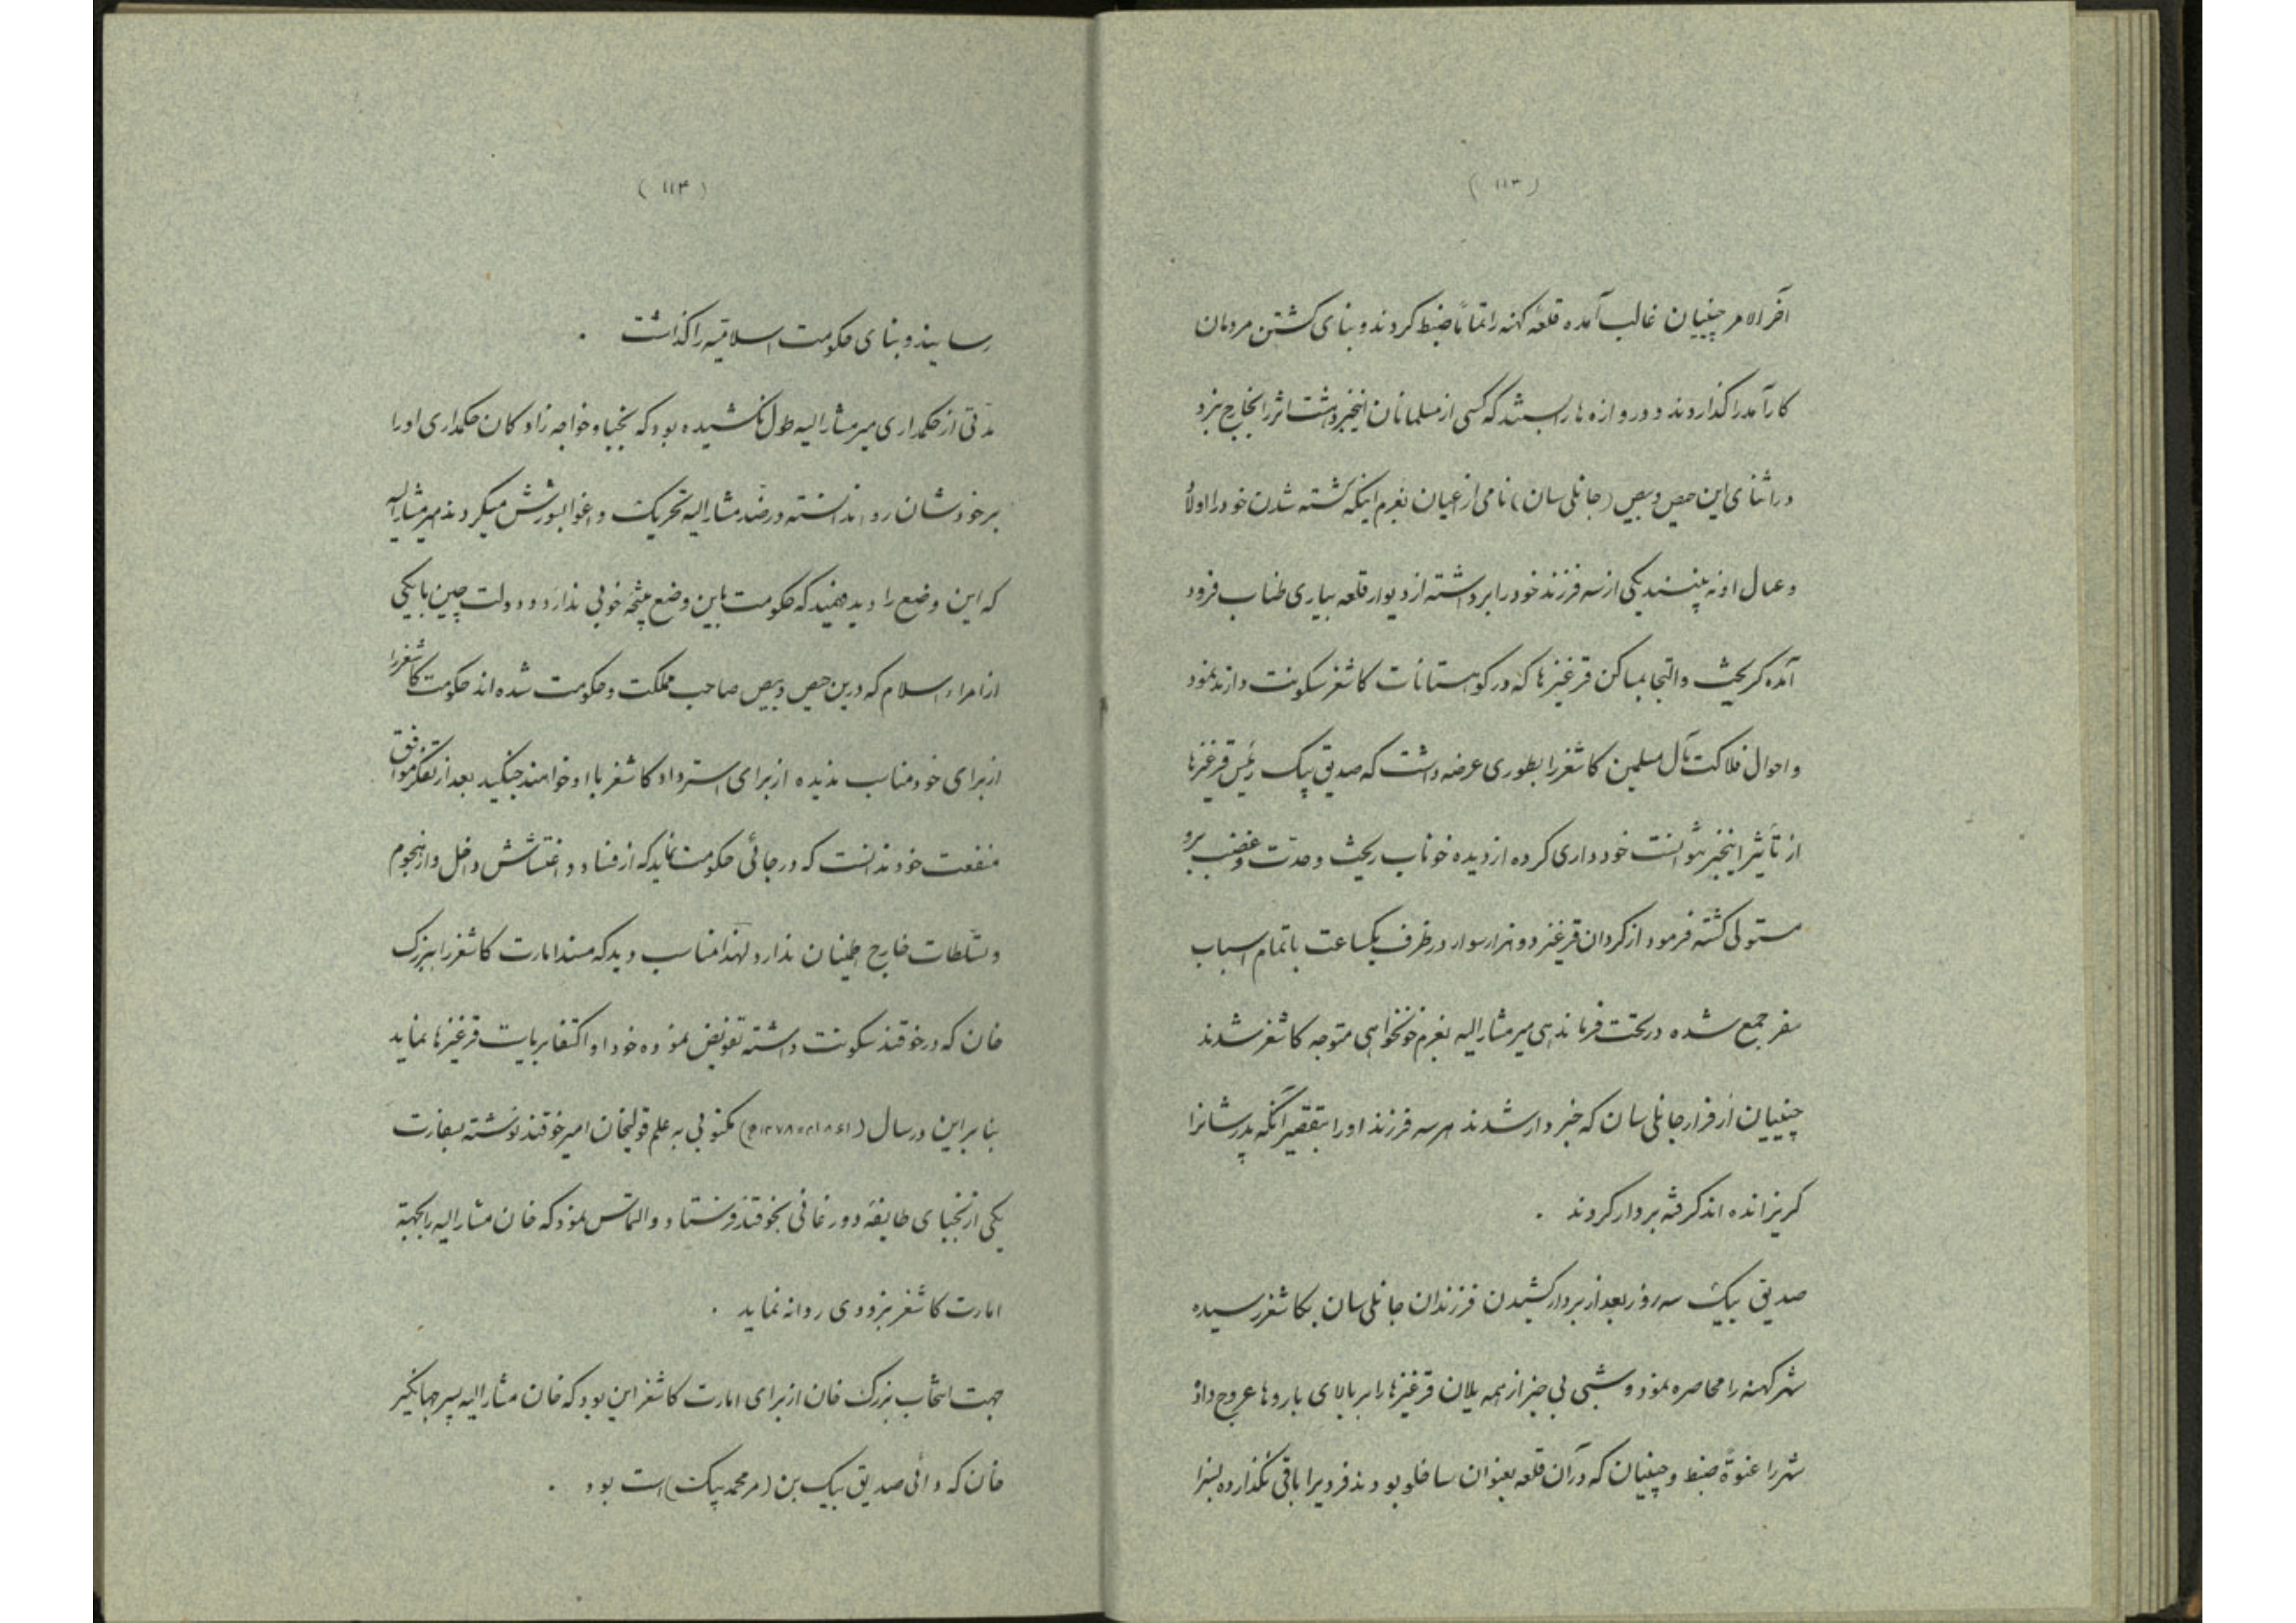 (۱۱۳)
آخر الامر چینیان غالب آمده قلعهٔ کهنه را تماماً ضبط کردند و بنای کشتن مردمان
کارآمد را گذاردند و دروازه ها را بستند که کسی از مسلمانان اینخبر دهشت اثر را بخارج نبرد
در اثنای این حیص و بیص (جانلی سان) نامی از اعیان بعزم اینکه کشته شدن خود را اولاد
و عیال او نه بینند یکی از سه فرزند خود را برداشته از دیوار قلعه بیاری طناب فرود
آمده کریخت و التجا بمساکن قرغیزها که در کوهستانات کاشغر سکونت دارند نمود
و احوال فلاکت مآل مسلمین کاشغر را بطوری عرضه داشت که صدیق بیک رئیس قرغیزها
از تأثیر اینخبر نتوانست خودداری کرده از دیده خوناب ریخت و حدّت و غضب برو
مستولی کشته فرمود از کردان قرغیز دو هزار سوار در ظرف یکساعت با تمام اسباب
سفر جمع شده در تحت فرماندهی میر مشارالیه بعزم خونخواهی متوجه کاشغر شدند
چینیان از فرار جانلی سان که خبردار شدند هر سه فرزند او را بتقصیر آنکه پدرشانرا
کریزانده اند کرفته بردار کردند .
صدیق بیک سه روز بعد از بردار کشیدن فرزندان جانلی سان بکاشغر رسیده
شهر کهنه را محاصره نمود و شبی بی خبر از همه یلان قرغیزها را بر بالای باروها عروج داد
شهر را عنوةً ضبط و چینیان که در آن قلعه بعنوان ساخلو بودند فردیرا باقی نگذارده بسزا
(۱۱۴)
رسانید و بنای حکومت اسلامیه را گذاشت .
مدّتی از حکمداری میر مشارالیه طول نکشیده بود که نجبا و خواجه زادکان حکمداری او را
بر خودشان روا ندانسته در ضدّ مشارالیه تحریک و اغوا بشورش میکردند میر مشارالیه
که این وضع را دید فهمید که حکومت باین وضع نتیجهٔ خوبی ندارد و دولت چین با یکی
از امراء اسلام که درین حیص و بیص صاحب مملکت و حکومت شده اند حکومت کاشغر را
از برای خود مناسب ندیده از برای استرداد کاشغر با او خواهند جنگید بعد از تفکر موافق
منفعت خود ندانست که در جائی حکومت نماید که از فساد و اغتشاش داخل و از هجوم
و تسلّطات خارج اطمینان ندارد لهذا مناسب دید که مسند امارت کاشغر را ببزرک
خان که در خوقند سکونت داشته تفویض نموده خود او اکتفا بریاست قرغیزها نماید
بنابراین در سال (۱۸۶۱م ۱۲۷۸ه) مکتوبی به علم قولیخان امیر خوقند نوشته بسفارت
یکی از نجبای طایفهٔ دورغانی بخوقند فرستاد و التماس نمود که خان مشارالیه را بجهة
امارت کاشغر بزودی روانه نماید .
جهت انتخاب بزرک خان از برای امارت کاشغر این بود که خان مشارالیه پسر جهانگیر
خان که دائی صدیق بیک بن (مرمحمد بیک) است بود .